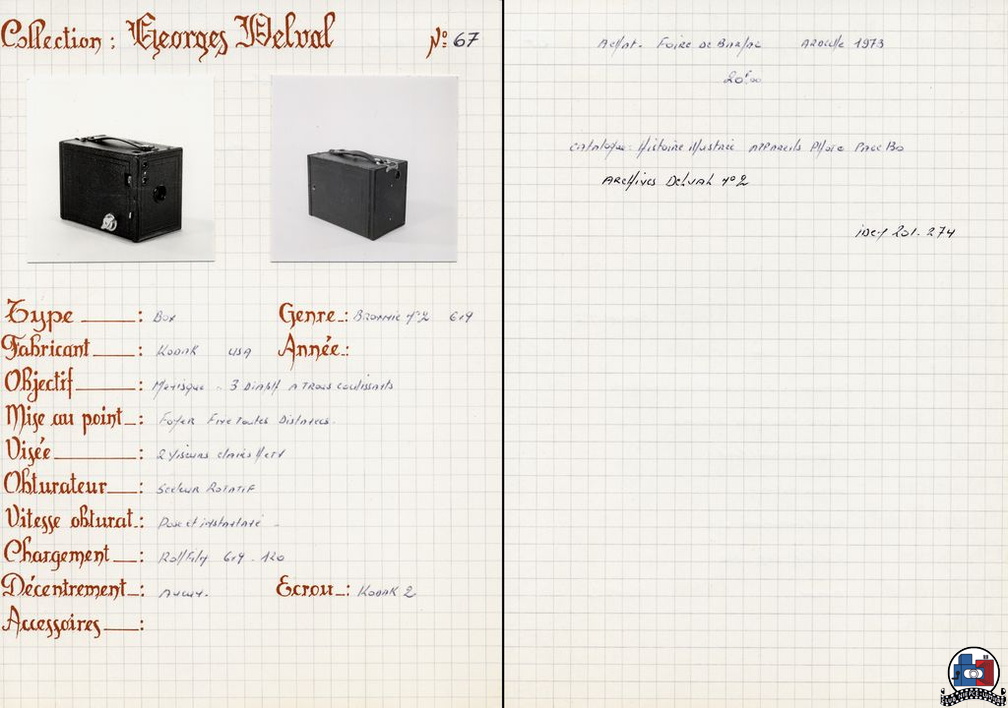 Collection : Georges Delval Nº 67
Type : Box Genre : Brownie nº2 6x9
Fabricant : Kodak USA Année :
Objectif : Menisque - 3 diaph a trous coulissants
Mise au point : Foyer Fixe toutes Distances.
Visée : 2 Viseurs clairs
Obturateur : Secteur Rotatif
Vitesse obturat. : Pose et instantané
Chargement : Rollfilm 6x9 - 120
Décentrement : aucun. Ecrou : Kodak 2
Accessoires :
Achat - Foire de Barjac Ardeche 1973
20f.00
catalogue : Histoire illustrée appareils Photo Page
Archives Delval nº2
201.274